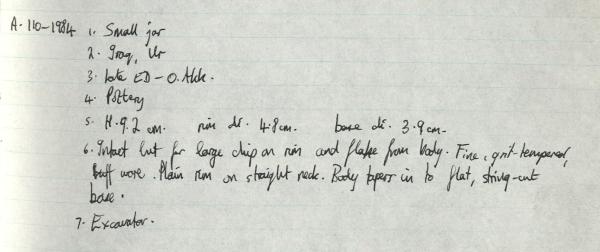 A. 110-1984 1. Small jar
2. Iraq, Ur
3. late ED - O. Akk.
4. Pottery
5. H. 9.2 cm. rim di. 4.8 cm. base di. 3.9 cm.
6. Intact but for large chip on rim and flake from body. Fine, grit-tempered,
buff ware. Plain rim on straight neck. Body tapers in to flat, string-cut
base.
7. Excavator.